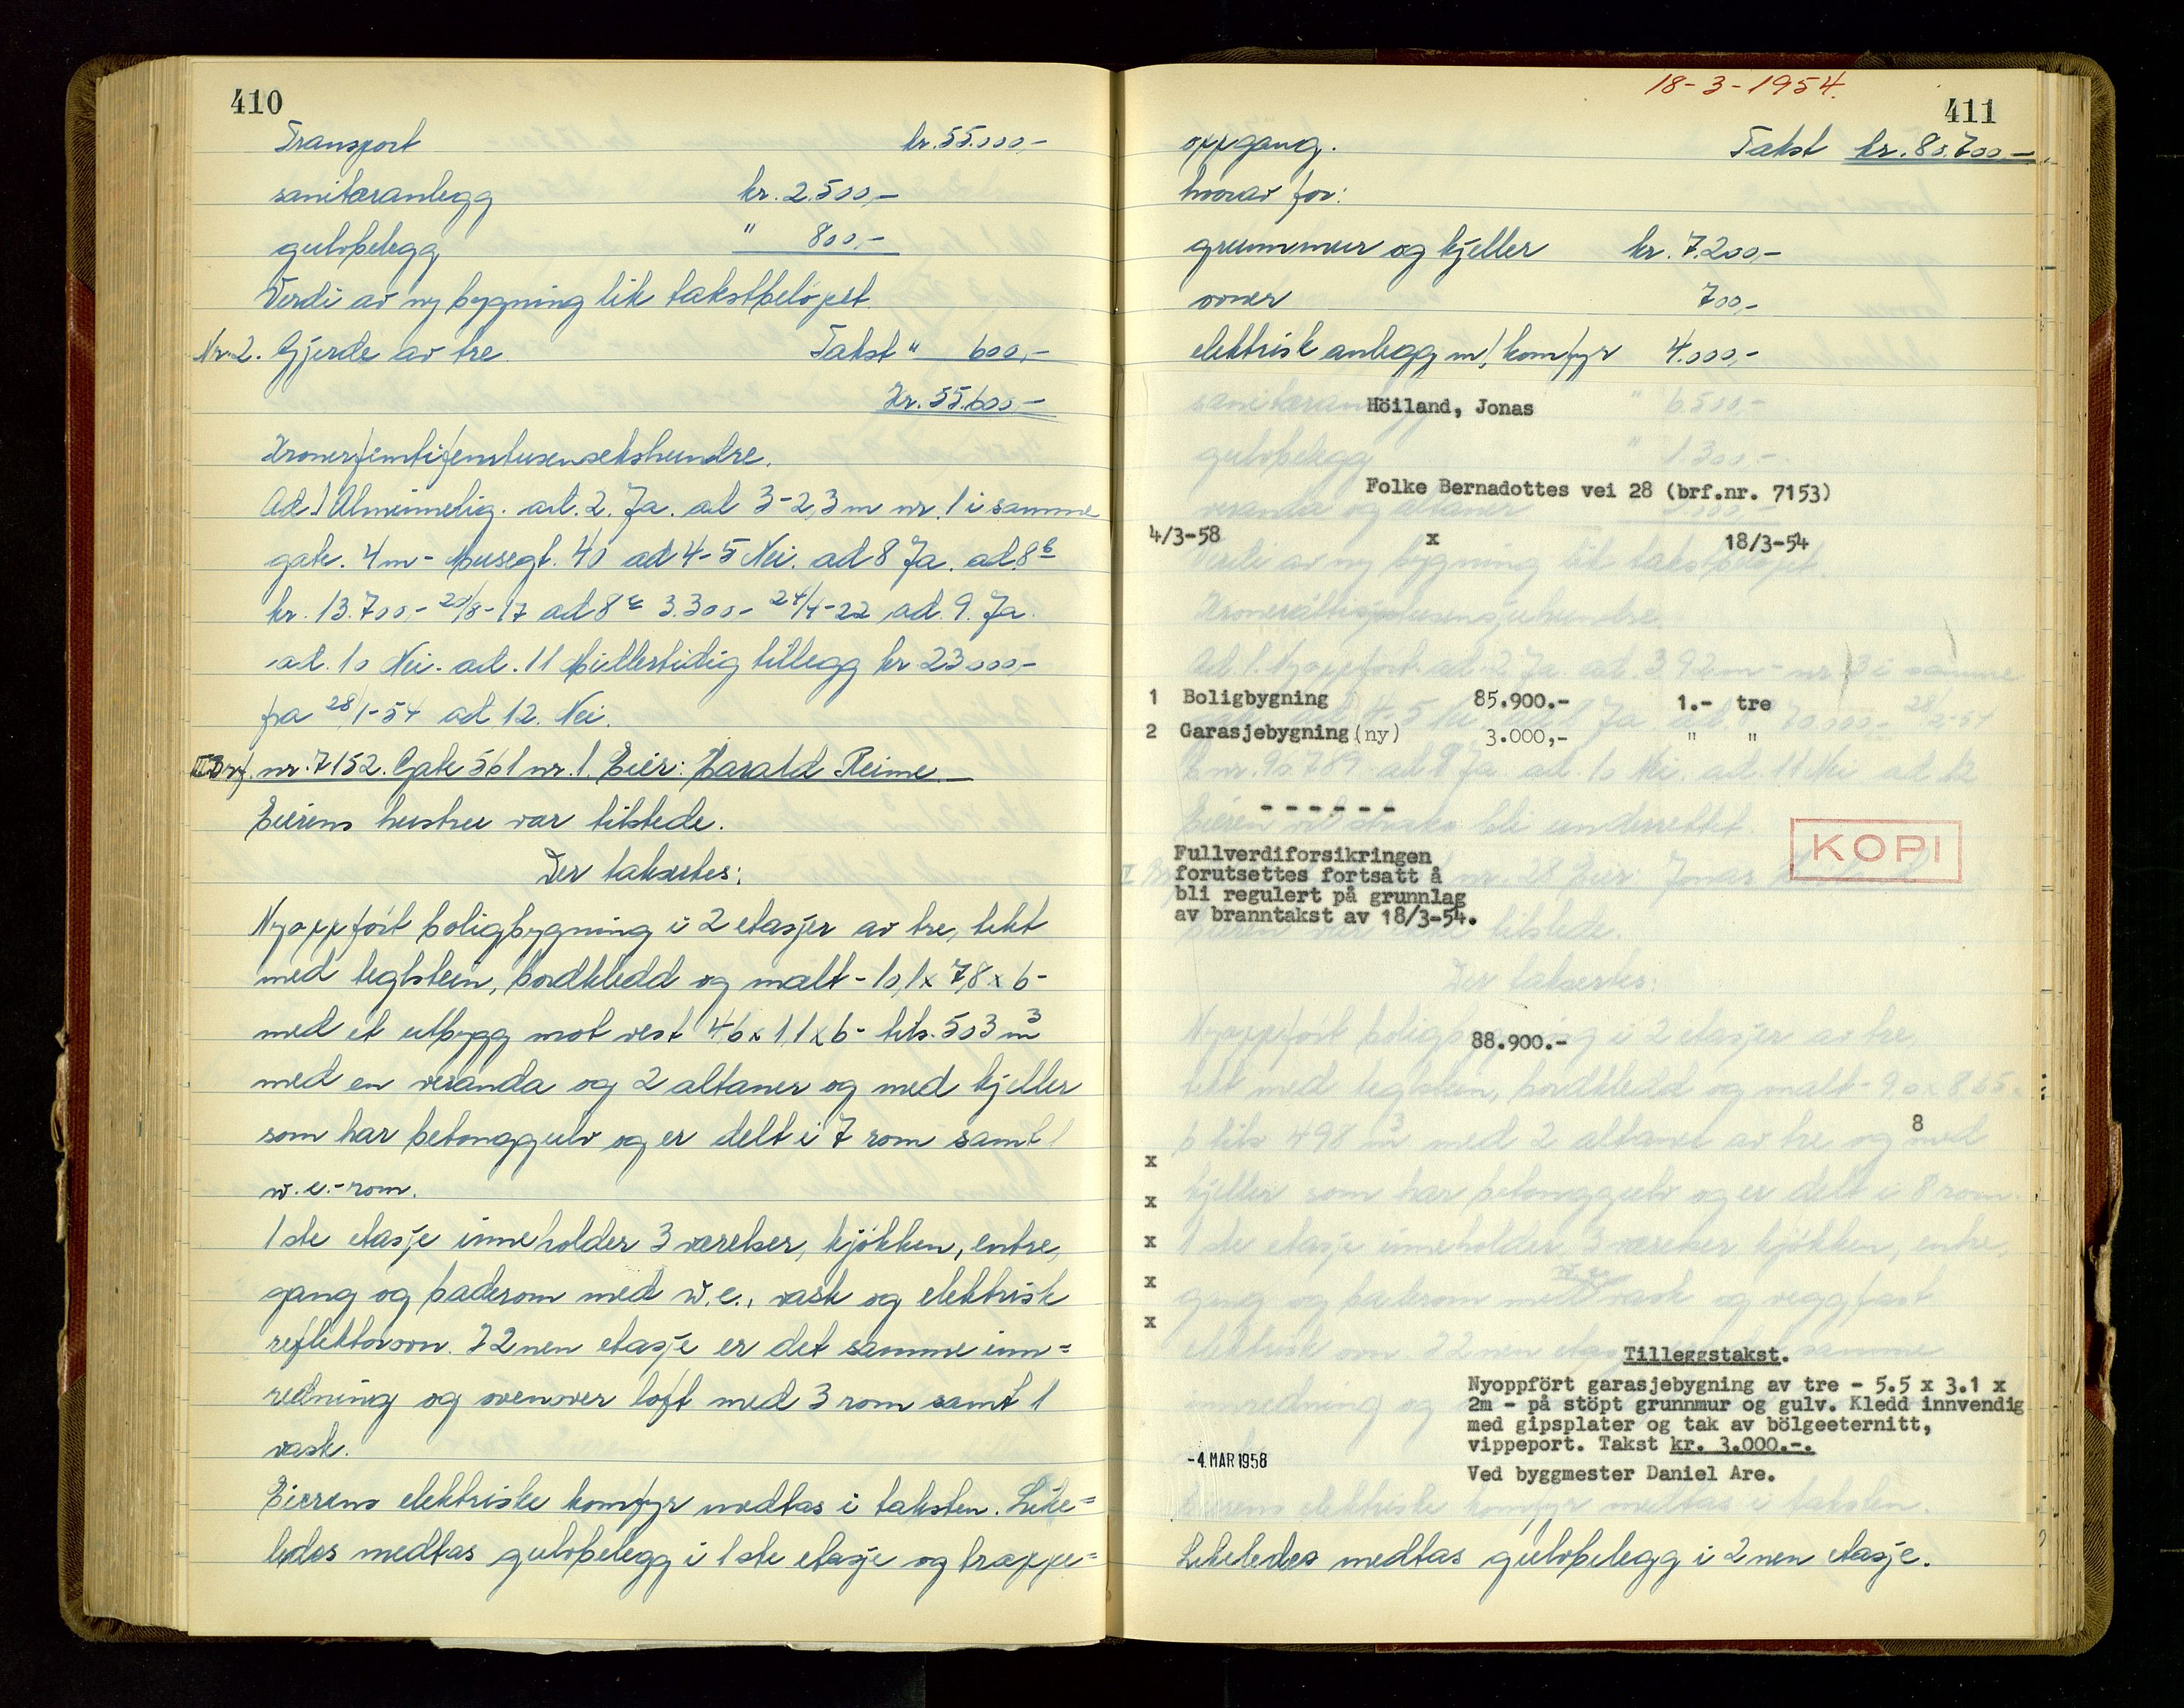 410
Transport kr. 55.000,-
sanitæranlegg kr. 2.500,-
gulvbelegg " 800,-
Verdi av ny bygning lik takstbelöpet.
Nr. 2. Gjerde av tre. Takst " 600,-
Kr. 55.600,-
Kronerfemtifemtusensekshundre.
Ad. 1 Alminnelig. ad. 2. Ja. ad 3 - 2,3 m nr. 1 i samme
gate. 4 m - Musegt. 40 ad 4-5 Nei. ad 8 Ja. ad. 8b
kr. 13.700,- 20/8-17 ad 8c 3.300,- 24/4-22 ad. 9. Ja.
ad. 10 Nei. ad. 11 Midlertidig tillegg kr 23000,-
fra 28/1-54 ad 12. Nei.
III Brf. nr. 7152. Gate 561 nr. 1. Eier: Harald Reime.
Eierens hustru var tilstede.
Der takseretes:
Nyoppfört boligbygning i 2 etasjer av tre, tekt
med teglstein, bordkledd og malt - 10,1 x 7,8 x 6 -
med et utbygg mot vest 4,6 x 1,1 x 6 - tils. 503 m3
med en veranda og 2 altaner og med kjeller
som har betonggulv og er delt i 7 rom samt 1
w.c.-rom.
1ste etasje inneholder 3 værelser, kjökken, entre,
gang og baderom med w.c., vask og elektrisk
reflektorovn. I 2nen etasje er det samme inn=
redning og ovenover loft med 3 rom samt 1
vask.
Eierens elektriske komfyr medtas i taksten. Like=
ledes medtas gulvbelegg i 1ste etasje og trappe=
18-3-1954.
411
oppgang. Takst kr. 80.700,-
hvorav for:
grunnmur og kjeller kr. 7.200,-
ovner 700,-
elektrisk anlegg m/komfyr 4.000,-
sanitæranlegg " 6.500,-
Höiland, Jonas
gulvbelegg " 1.300,-
Folke Bernadottes vei 28 (brf.nr. 7153)
veranda og altaner
4/3-58 x 18/3-54
Verdi av ny bygning lik takstbelöpet.
Kronerättitusensjuhundre.
Ad 1. Nyoppfört. ad. 2 Ja. ad. 3 9,2 m - nr. 3 i samme
1 Boligbygning 85.900.- 1.- tre
2 Garasjebygning (ny) 3.000,- " "
nr. 90.789 ad 9 Ja. ad. 10 Nei. ad. 11 Nei ad 12
- - - - - -
Eieren vil straks bli underrettet.
KOPI
Fullverdiforsikringen
forutsettes fortsatt å
bli regulert på grunnlag
av branntakst av 18/3-54.
nr. 28 Eier: Jonas
tilstede.
Der takseretes:
Nyoppfört boligbygning i 2 etasjer av tre,
88.900.-
tekt med teglstein, bordkledd og malt - 9,0 x 8,65 x
8
6 tils 498 m3 med 2 altaner av tre og med
x
kjeller som har betonggulv og er delt i 8 rom.
x
1ste etasje inneholder 3 værelser kjökken, entre,
x
gang og baderom med vask og veggfast
x
x
elektrisk ovn. I 2nen etasje samme
Tilleggstakst.
innredning og
Nyoppfört garasjebygning av tre - 5.5 x 3.1 x
2m - på stöpt grunnmur og gulv. Kledd innvendig
med gipsplater og tak av bölgeeternitt,
vippeport. Takst kr. 3.000.-.
-4. MAR 1958
Ved byggmester Daniel Are.
Eierens elektriske komfyr medtas i taksten.
Likeledes medtas gulvbelegg i 2nen etasje.